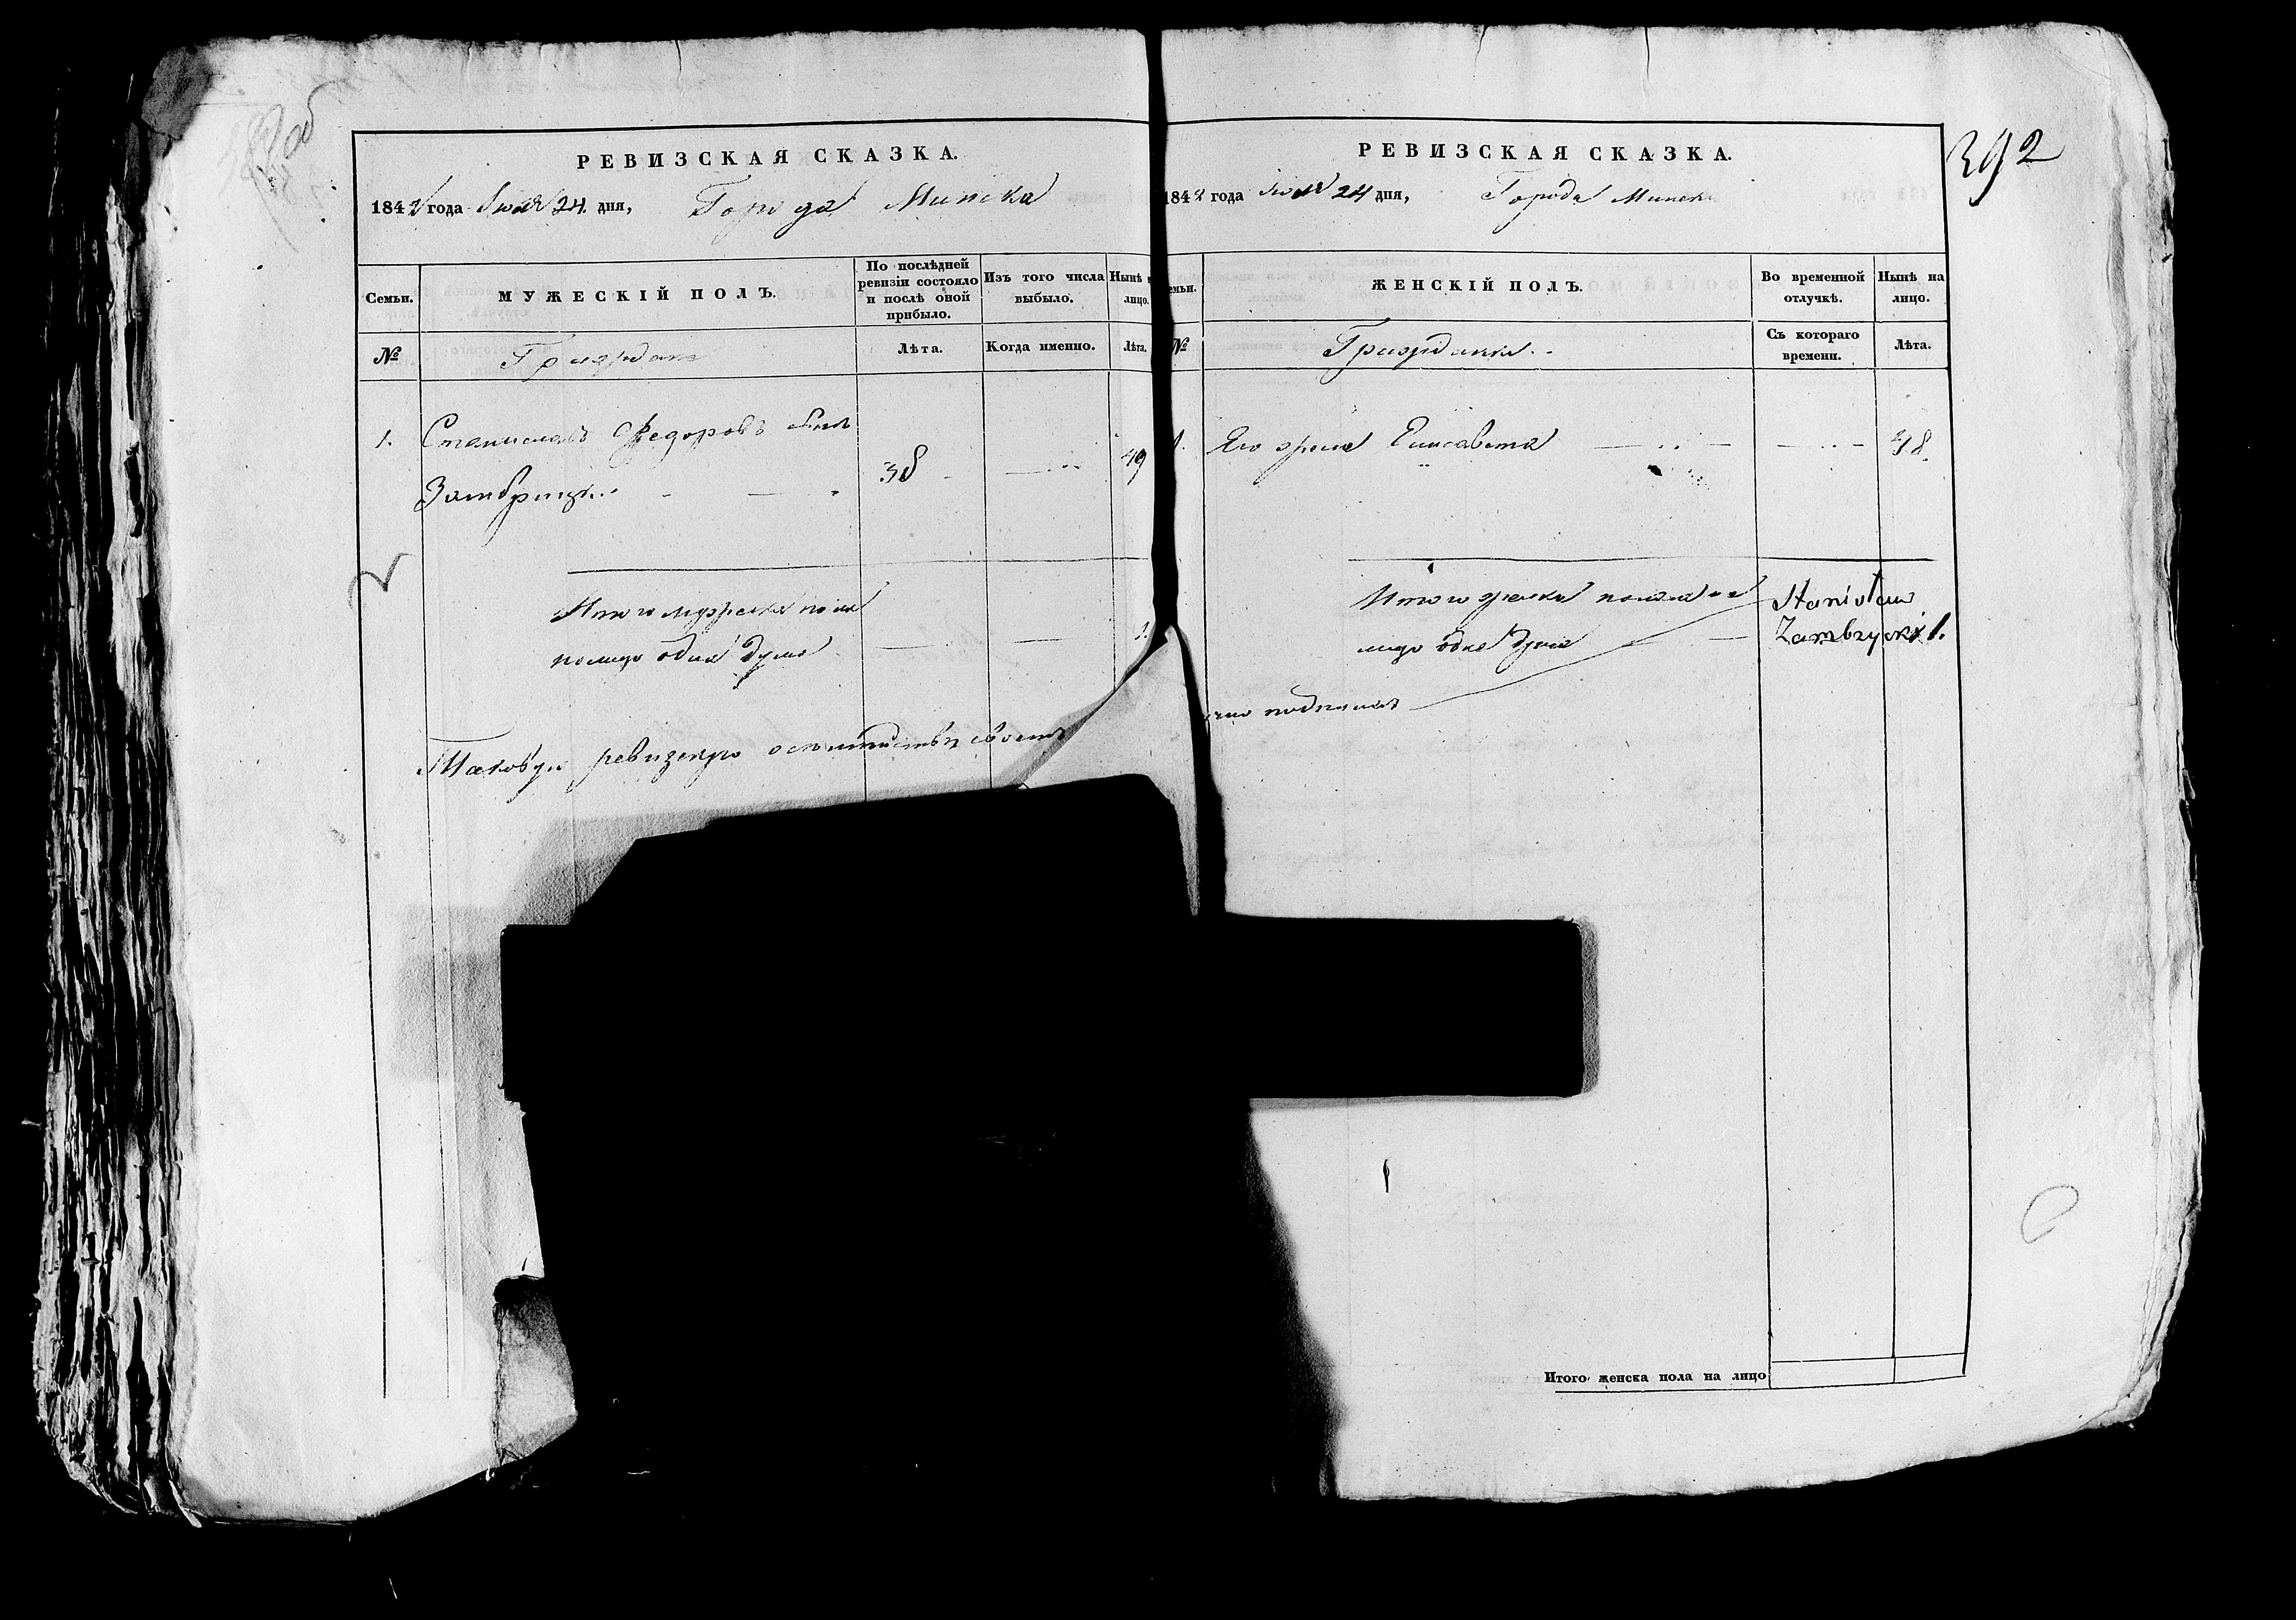 392
РЕВИЗСКАЯ СКАЗКА.
1842 года Июля 24. дня, Города Минска
Семьи.
МУЖЕСКІЙ ПОЛЪ.
По послѣдней ревизіи состояло и послѣ оной прибыло.
Изъ того числа выбыло.
Нынѣ лицо.
№
Граждане
Лѣта.
Когда именно.
Лѣта.
1. Станиславъ Федоровъ сынъ 38 49
Замбрицкій
Итого мужеска пола
на лицо одна душа 1.
Таковую ревизскую
РЕВИЗСКАЯ СКАЗКА.
1842 года Июля 24 дня, Города Минска
емьи.
ЖЕНСКІЙ ПОЛЪ.
Во временной отлучкѣ.
Нынѣ на лицо.
№
Гражданки
Съ котораго времени.
Лѣта.
1. Его жена Елисавета 48.
Итого женска пола на
лицо одна душа 1.
подписалъ
Stanisław
Zambrzycki
Итого женска пола на лицо